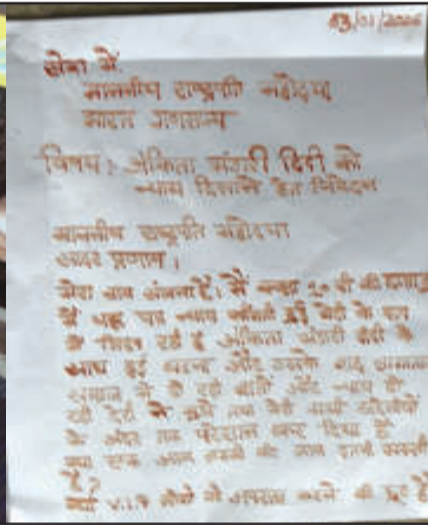 03/01/2026
सेवा में,
माननीय राष्ट्रपति महोदया
भारत गणराज्य
विषय :- अंकिता भंडारी दीदी को
न्याय दिलाने हेतु निवेदन
माननीय राष्ट्रपति महोदया
सादर प्रणाम ।
मेरा नाम संजना है। मैं कक्षा
मैं यह पत्र न्याय मांगती हुई बेटी के रूप
में लिख रही हूं अंकिता भंडारी दीदी के
साथ हुई घटना और उसके बाद
समाज में हो रही और न्याय में
रही देरी ने मुझे तथा मेरी सभी
के अंदर तक परेशान कर दिया है
क्या एक आम लड़की की जान इतनी सस्ती
है?
क्या V.I.P लोगों को अपराध करने की छूट है